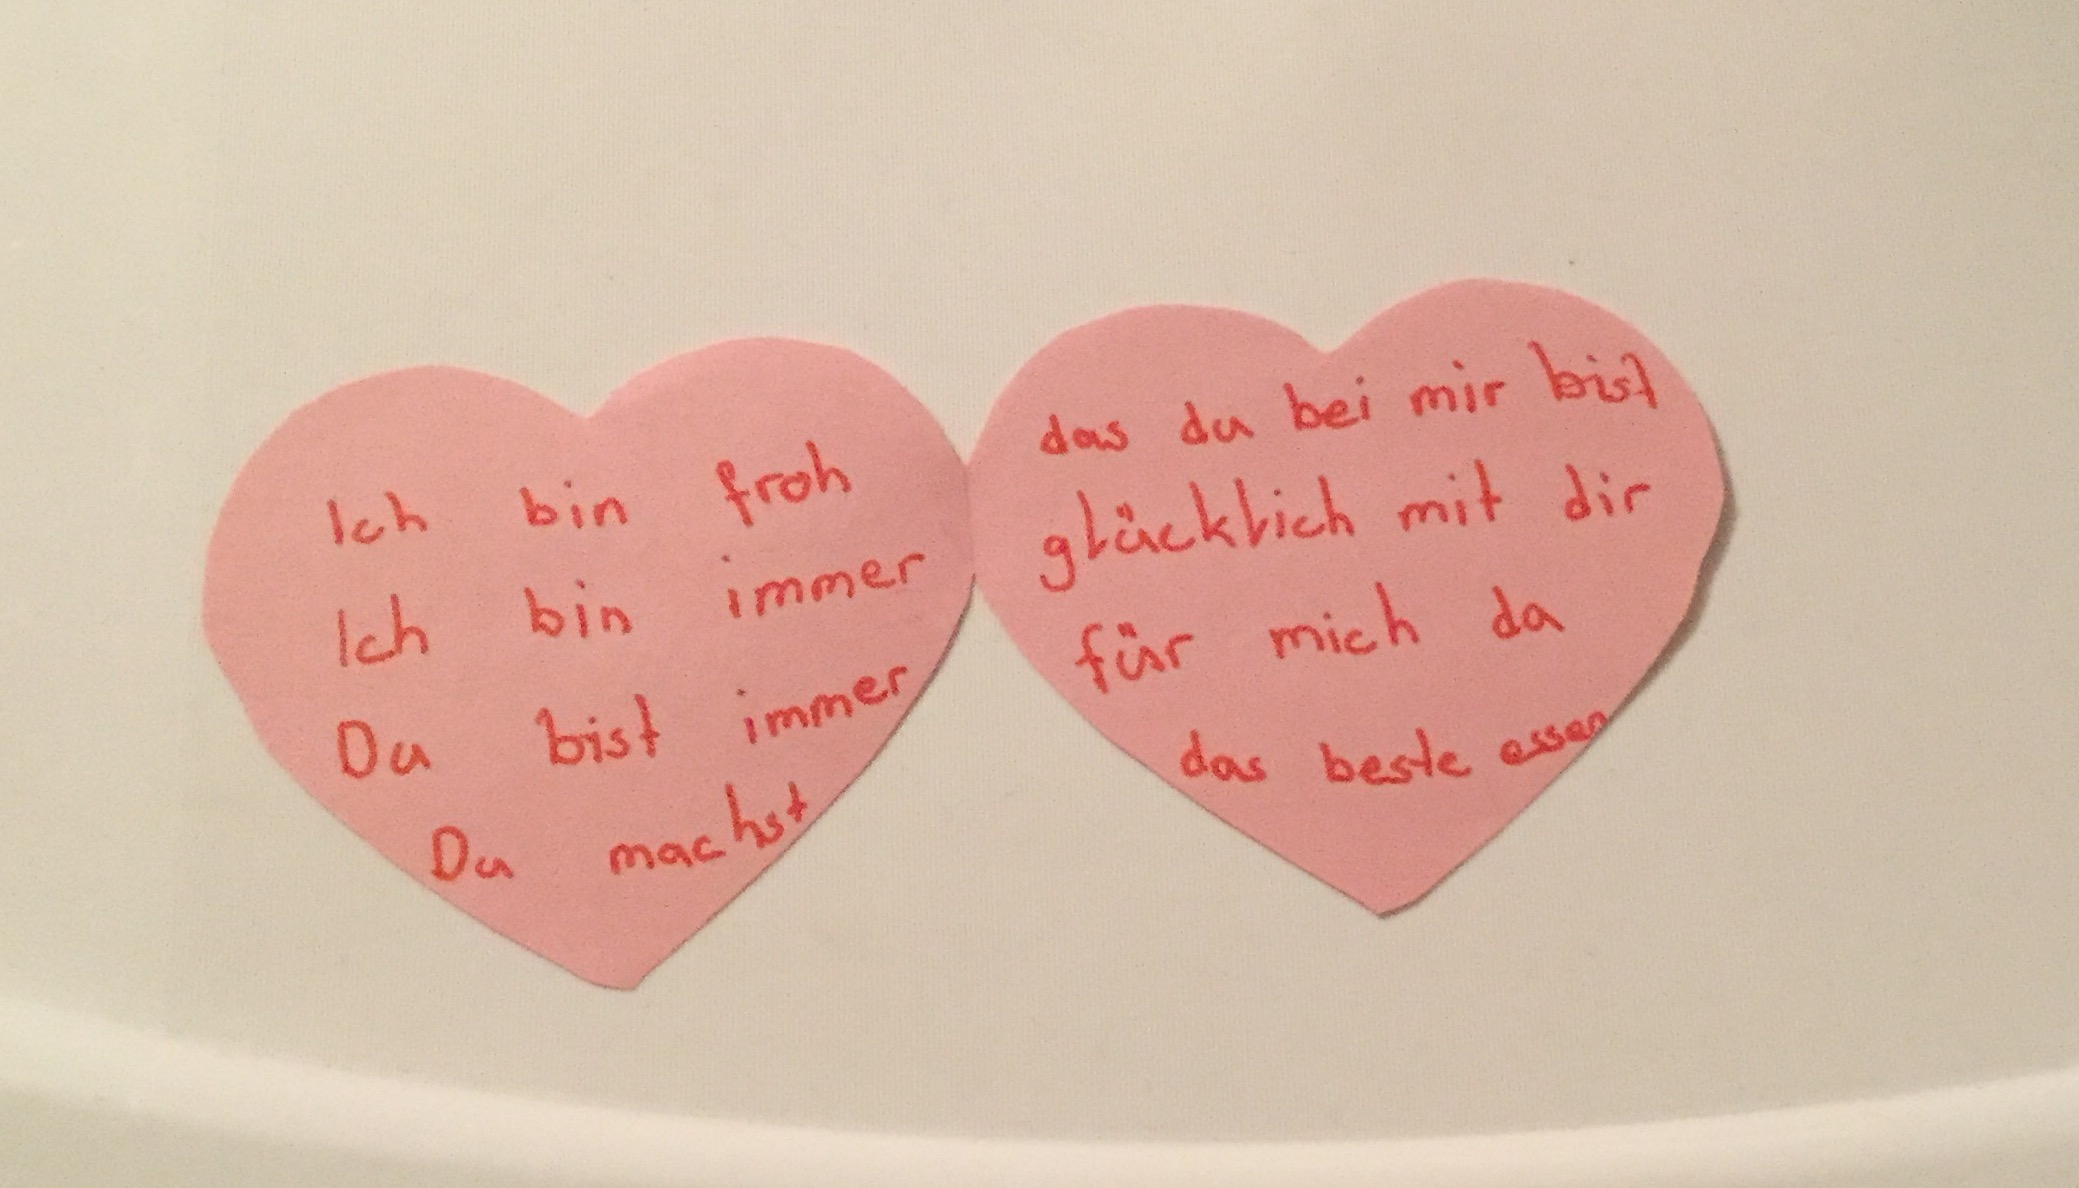 Ich bin froh das du bei mir bist
Ich bin immer glücklich mit dir
Du bist immer für mich da
Du machst das beste essen